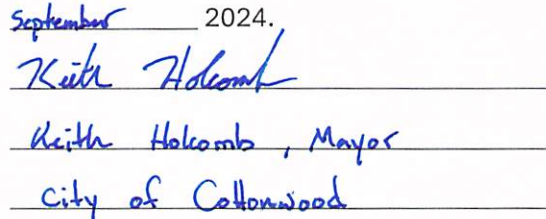 September 2024.
Keith Holcomb
Keith Holcomb, Mayor
City of Cottonwood